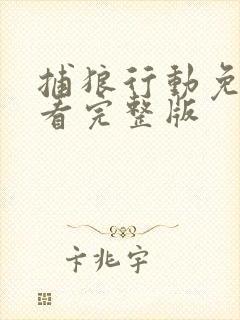 捕狼行動免
看完整版
卡兆宇